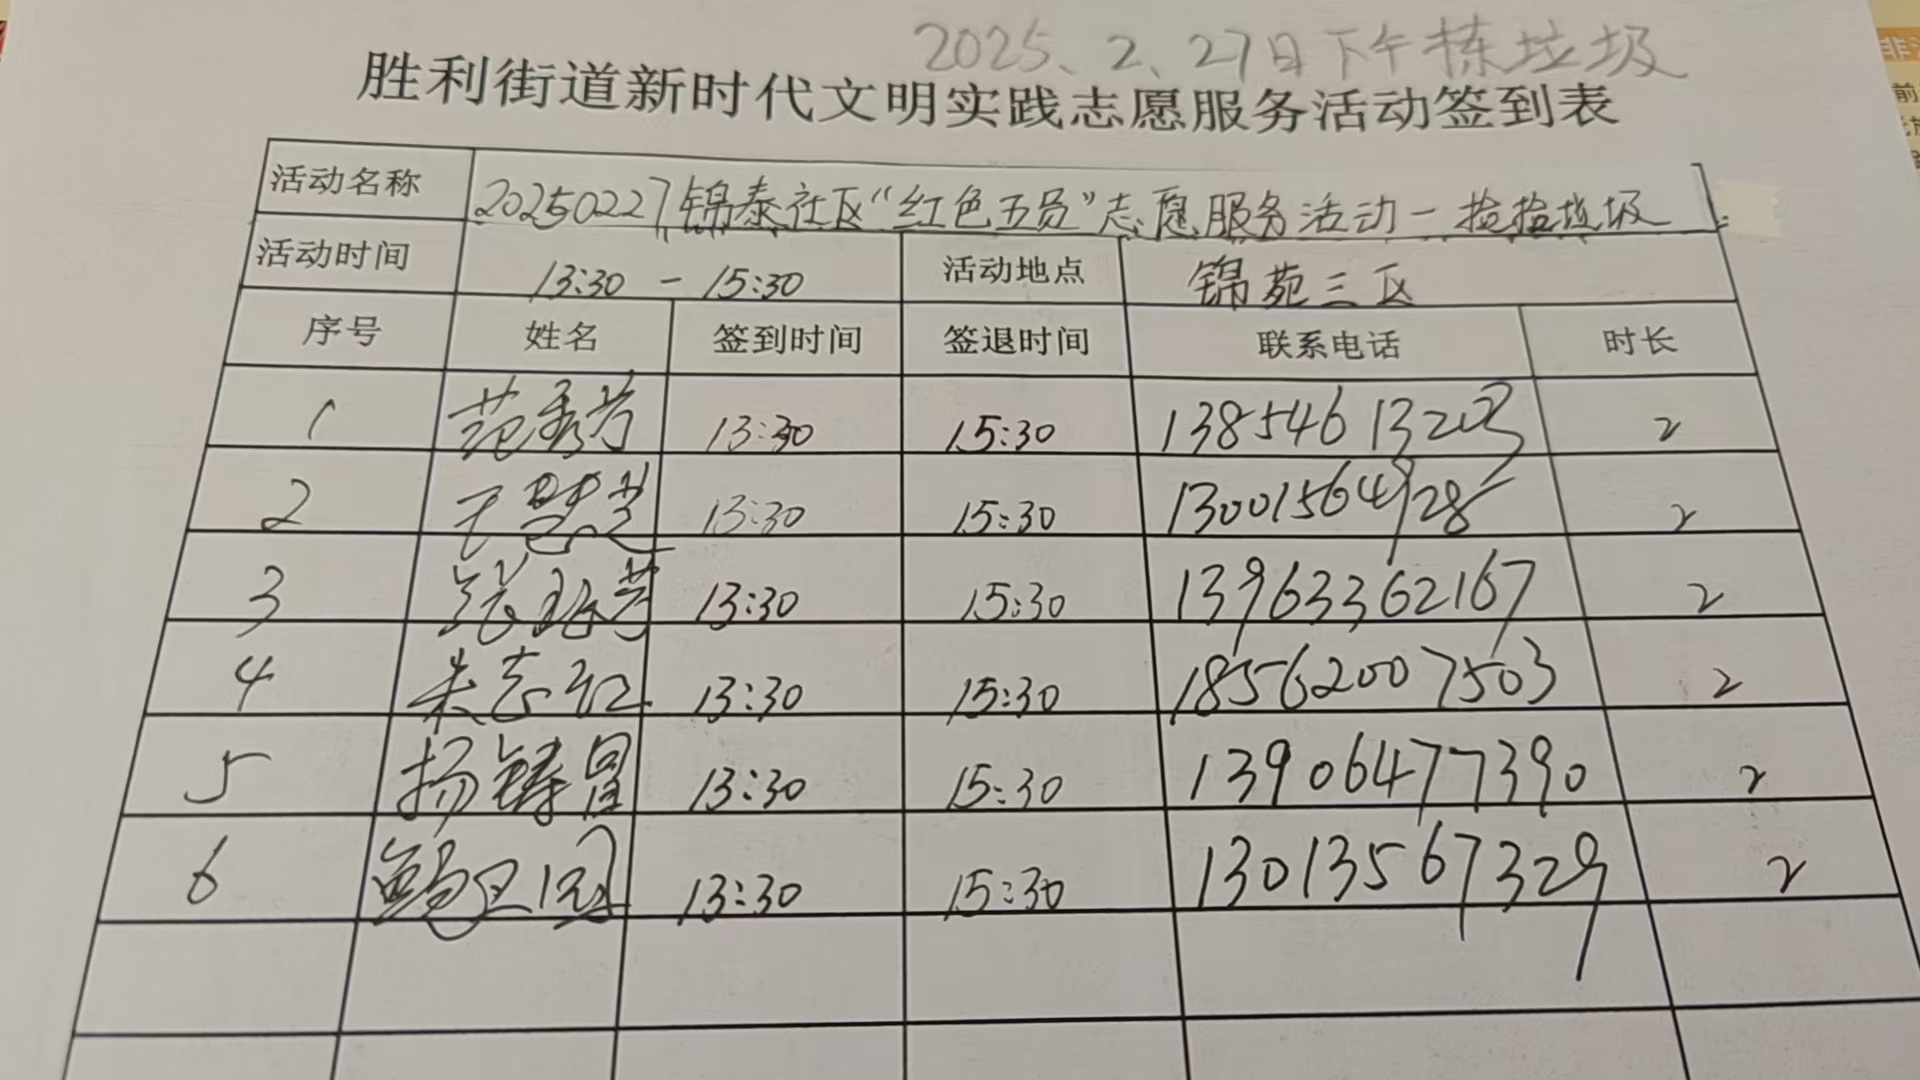 2025、2、27日下午拣垃圾
胜利街道新时代文明实践志愿服务活动签到表
活动名称 20250227锦泰社区“红色五员”志愿服务活动-捡捡垃圾
活动时间 13:30-15:30 活动地点 锦苑三区
序号 姓名 签到时间 签退时间 联系电话 时长
1 范秀芳 13:30 15:30 13854613203 2
2 13:30 15:30 13001564928 2
3 13:30 15:30 13963362167 2
4 朱志红 13:30 15:30 18562007503 2
5 扬铸 13:30 15:30 13906477390 2
6 鲍卫国 13:30 15:30 13013567329 2